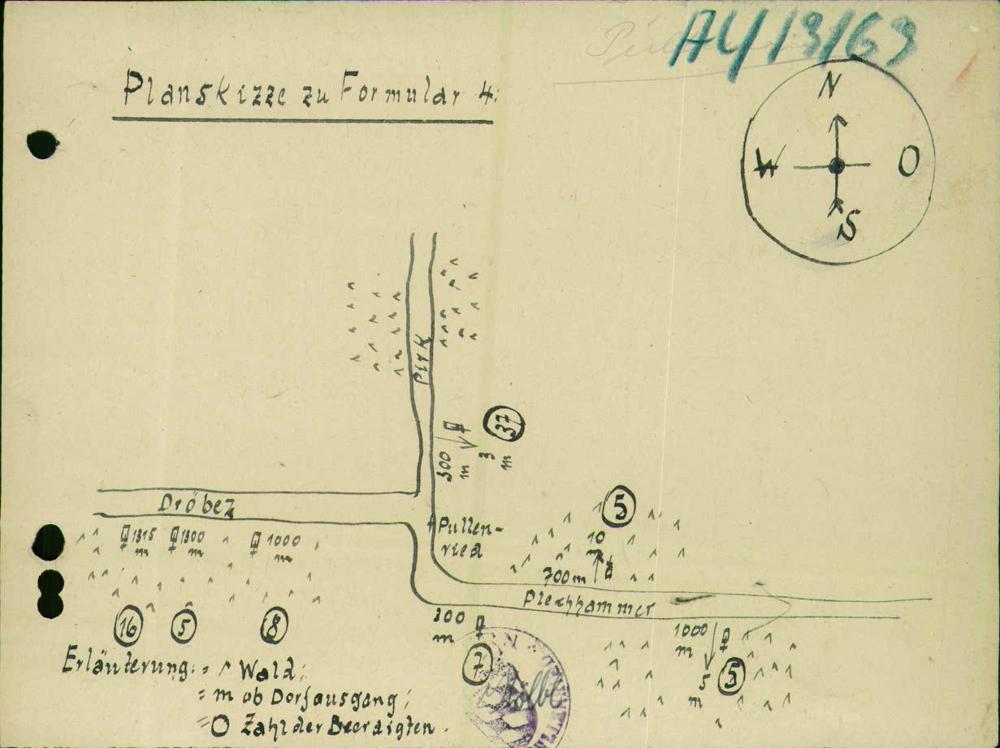 A4/13/69
Planskizze zu Formular 4:
N
W O
S
Pirk
37
300 m
3 m
Dröbez
1315 m
1300 m
1000 m
Pullen-
ried
5
10 m
700 m
Plechhammer
16
5
8
300 m
7
1000 m
5 m
5
Erläuterung: = ^ Wald;
= m ob Dorfausgang;
= O Zahl der Beerdigten.